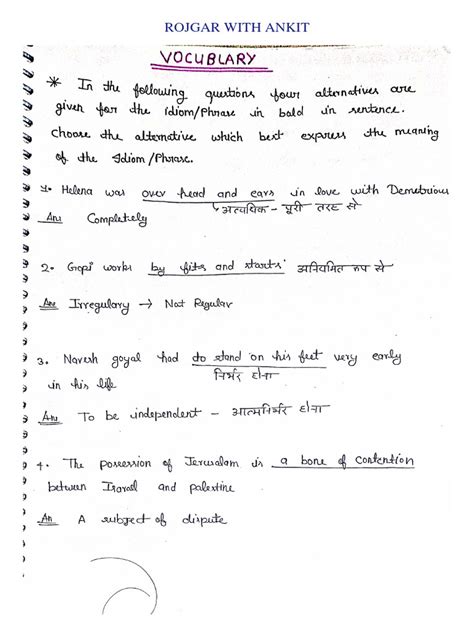 ROJGAR WITH ANKIT
VOCUBLARY
* In the following questions four alternatives are
given for the idiom/Phrase in bold in sentence.
Choose the alternative which best express the meaning
of the Idiom/Phrase.
1. Helena was over head and ears in love with Demetrious
अत्यधिक - पूरी तरह से
Ans Completely
2. Gopi works by fits and starts. अनियमित रूप से
Ans Irregulary → Not Regular
3. Naresh goyal had to stand on his feet very early
निर्भर होना
in his life
Ans To be independent - आत्मनिर्भर होना
4. The possession of Jerusalam is a bone of contention
between Isreal and palestine
An A subject of dispute